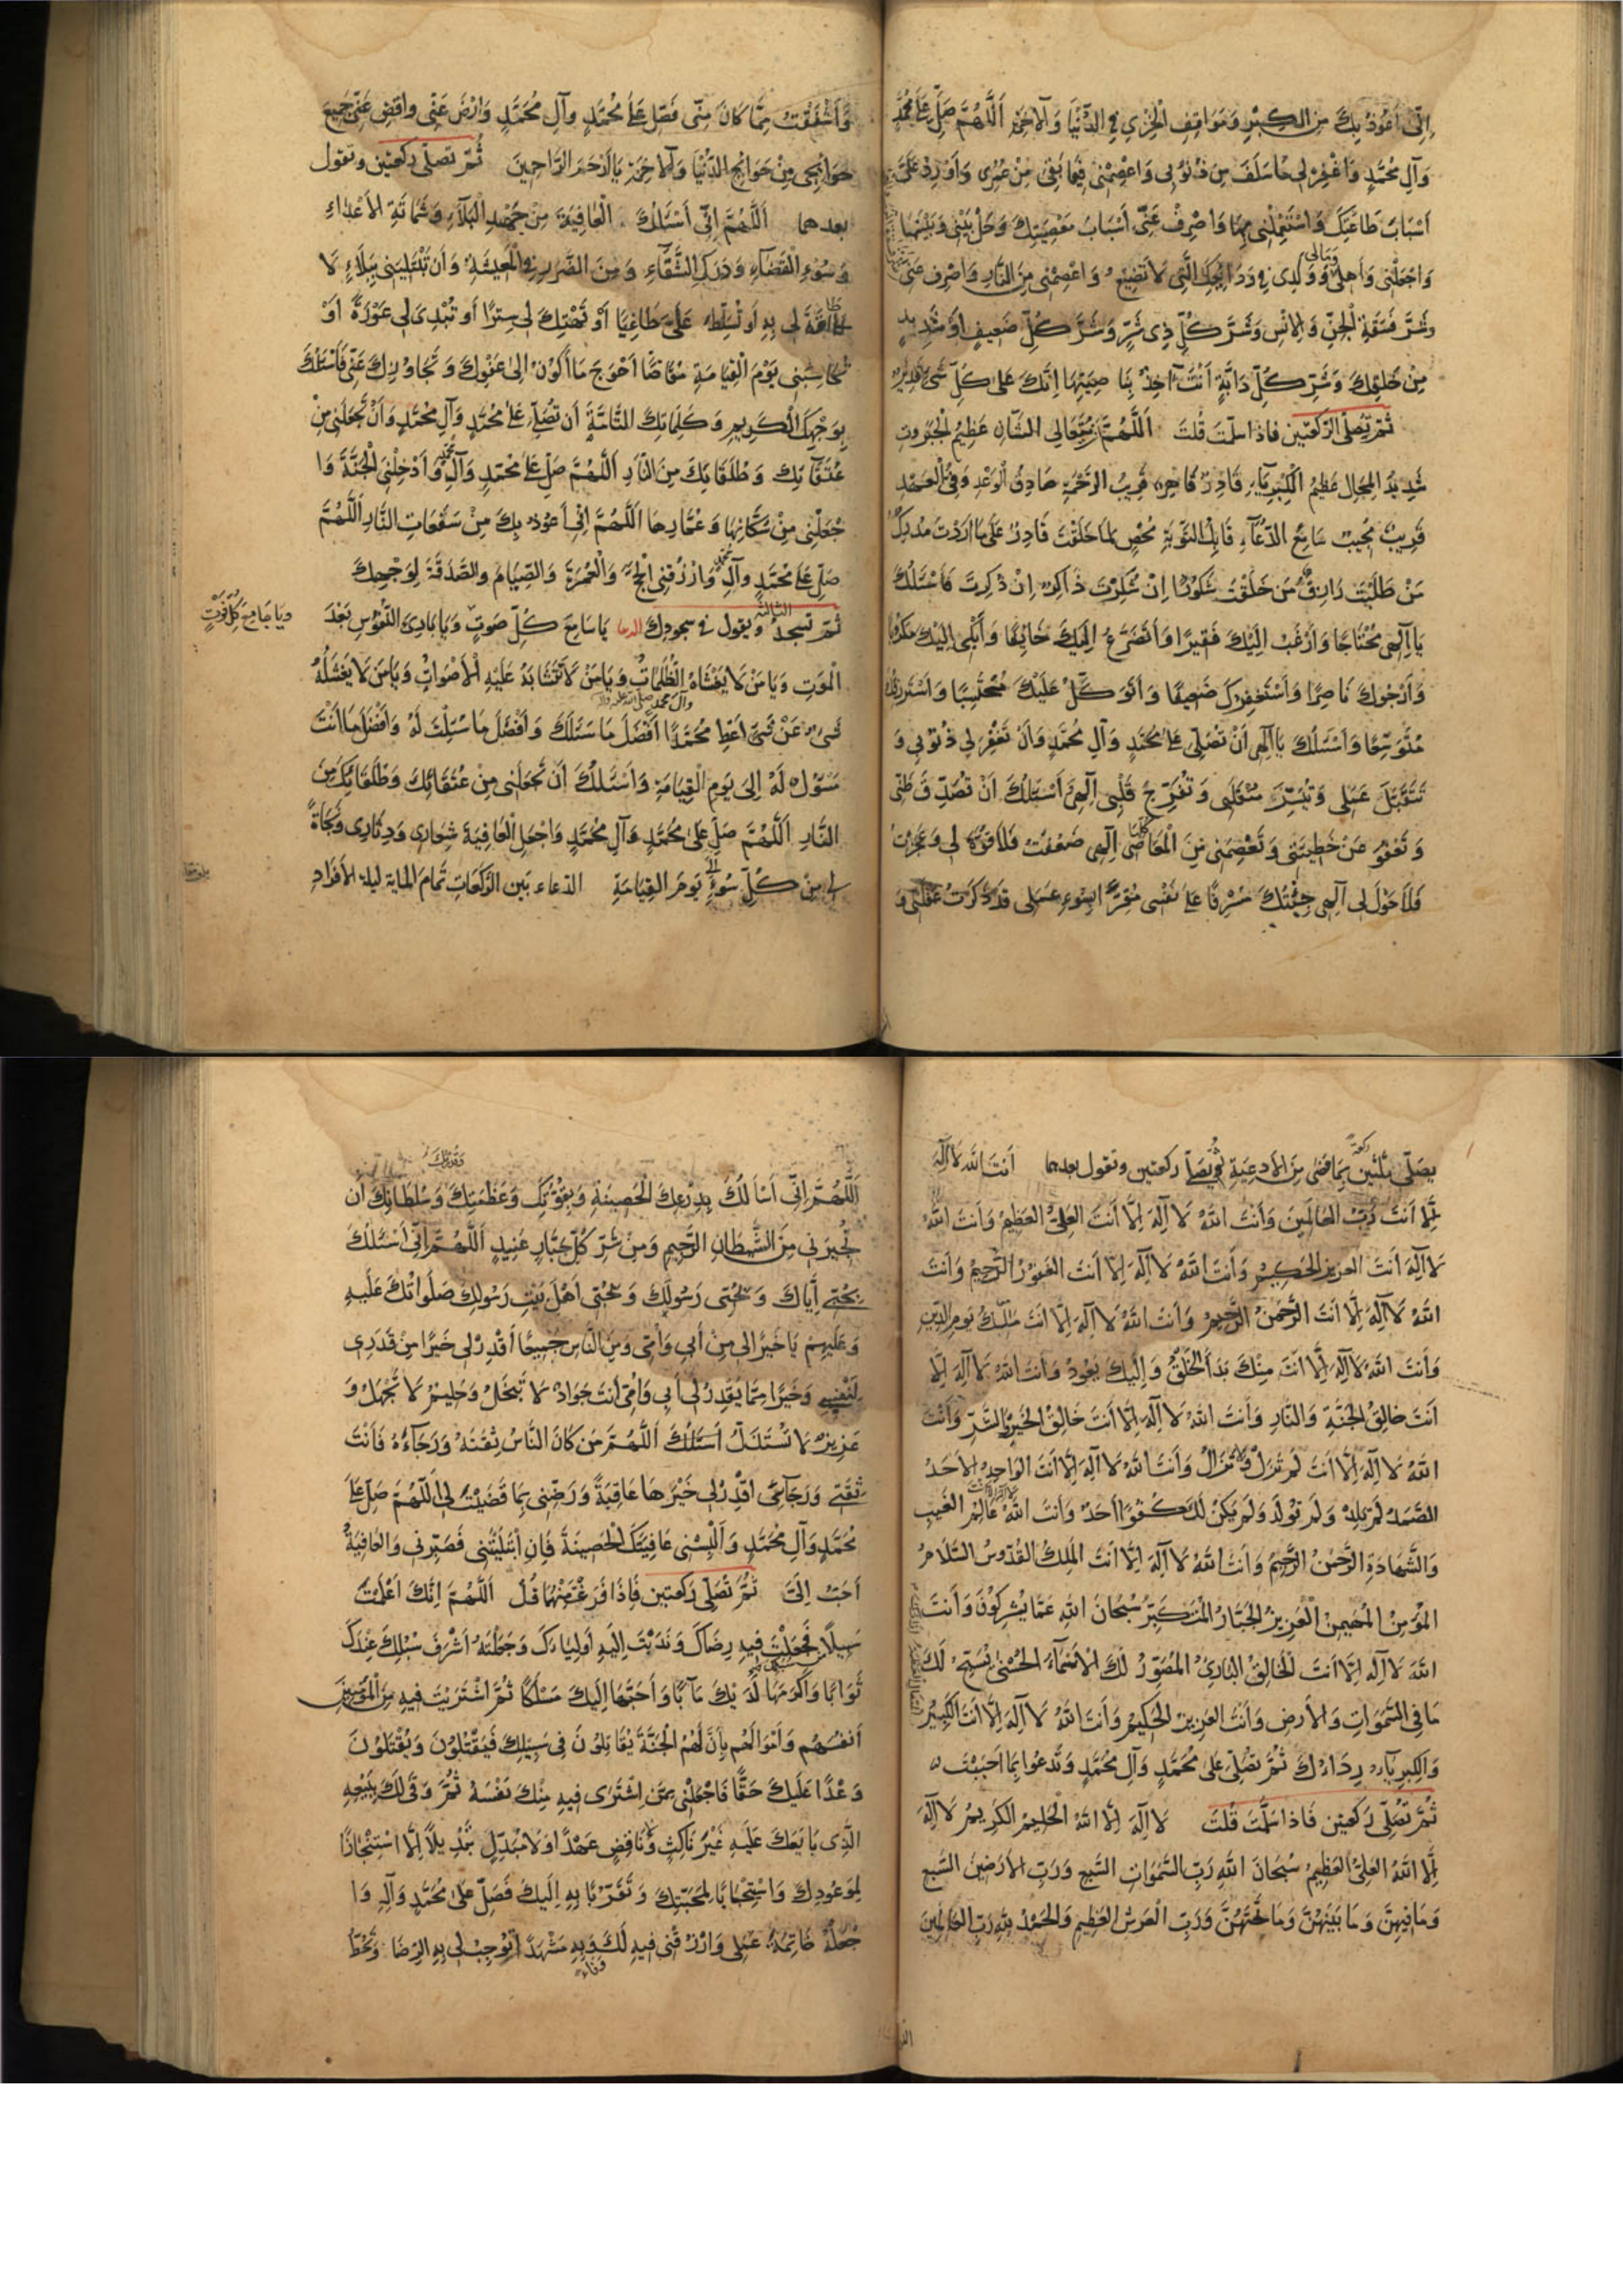 اِنّي أَعُوذُ بِكَ مِنَ الكِبْرِ وَمَوَاقِفِ الْخِزْيِ فِي الدُّنْيَا وَالآخِرَةِ اَللَّهُمَّ صَلِّ عَلَى مُحَمَّدٍ
وَآلِ مُحَمَّدٍ وَاغْفِرْ لِي مَا سَلَفَ مِنْ ذُنُوبِي وَاعْصِمْنِي فِيمَا بَقِيَ مِنْ عُمْرِي وَأَوْرِدْ عَلَيَّ
أَسْبَابَ طَاعَتِكَ وَاسْتَعْمِلْنِي بِهَا وَاصْرِفْ عَنِّي أَسْبَابَ مَعْصِيَتِكَ وَحُلْ بَيْنِي وَبَيْنَهَا
وَمَالِي
وَاجْعَلْنِي وَأَهْلِي وَوَلَدِي فِي وَدَائِعِكَ الَّتِي لَا تَضِيعُ وَاعْصِمْنِي مِنَ النَّارِ وَاصْرِفْ عَنِّي
شَرَّ فَسَقَةِ الْجِنِّ وَالإِنْسِ وَشَرَّ كُلِّ ذِي شَرٍّ وَشَرَّ كُلِّ ضَعِيفٍ أَوْ شَدِيدٍ
مِنْ خَلْقِكَ وَشَرَّ كُلِّ دَابَّةٍ أَنْتَ آخِذٌ بِنَاصِيَتِهَا اِنَّكَ عَلَى كُلِّ شَيْءٍ قَدِيرٌ
ثُمَّ تُصَلِّي الرَّكْعَتَيْنِ فَاِذَا سَلَّمْتَ قُلْتَ اَللَّهُمَّ مُتَعَالِي الشَّانِ عَظِيمُ الْجَبَرُوتِ
شَدِيدُ الْمِحَالِ عَظِيمُ الْكِبْرِيَاءِ قَادِرٌ قَاهِرٌ قَرِيبُ الرَّحْمَةِ صَادِقُ الْوَعْدِ وَفِيُّ الْعَهْدِ
قَرِيبٌ مُجِيبٌ سَامِعُ الدُّعَاءِ قَابِلُ التَّوْبَةِ مُحْصٍ لِمَا خَلَقْتَ قَادِرٌ عَلَى مَا أَرَدْتَ مُدْرِكُ
مَنْ طَلَبْتَ رَازِقُ مَنْ خَلَقْتَ شَكُورٌ اِنْ شُكِرْتَ ذَاكِرٌ اِنْ ذُكِرْتَ فَأَسْئَلُكَ
يَا اِلٰهِي مُحْتَاجًا وَأَرْغَبُ اِلَيْكَ فَقِيرًا وَأَتَضَرَّعُ اِلَيْكَ خَائِفًا وَأَبْكِي اِلَيْكَ مَكْرُوبًا
وَأَرْجُوكَ نَاصِرًا وَأَسْتَغْفِرُكَ ضَعِيفًا وَأَتَوَكَّلُ عَلَيْكَ مُحْتَسِبًا وَأَسْتَرْزِقُكَ
مُتَوَسِّعًا وَأَسْئَلُكَ يَا اِلٰهِي أَنْ تُصَلِّيَ عَلَى مُحَمَّدٍ وَآلِ مُحَمَّدٍ وَأَنْ تَغْفِرَ لِي ذُنُوبِي وَ
تَتَقَبَّلَ عَمَلِي وَتُيَسِّرَ مُنْقَلَبِي وَتُفَرِّجَ قَلْبِي اِلٰهِي أَسْئَلُكَ أَنْ تُصَدِّقَ ظَنِّي
وَتَعْفُوَ عَنْ خَطِيئَتِي وَتَعْصِمَنِي مِنَ الْمَعَاصِي اِلٰهِي ضَعُفْتُ فَلَا قُوَّةَ لِي وَعَجَزْتُ
فَلَا حَوْلَ لِي اِلٰهِي جِئْتُكَ مُسْرِفًا عَلَى نَفْسِي مُقِرًّا بِسُوءِ عَمَلِي قَدْ ذَكَرْتُ غَفْلَتِي وَ
وَأَشْفَقْتُ مِمَّا كَانَ مِنِّي فَصَلِّ عَلَى مُحَمَّدٍ وَآلِ مُحَمَّدٍ وَارْضَ عَنِّي وَاقْضِ عَنِّي جَمِيعَ
حَوَائِجِي مِنْ حَوَائِجِ الدُّنْيَا وَالآخِرَةِ يَا أَرْحَمَ الرَّاحِمِينَ ثُمَّ تُصَلِّي رَكْعَتَيْنِ وَتَقُولُ
بعدهما اَللَّهُمَّ اِنِّي أَسْئَلُكَ الْعَافِيَةَ مِنْ جَهْدِ الْبَلَاءِ وَشَمَاتَةِ الأَعْدَاءِ
وَسُوءِ الْقَضَاءِ وَدَرَكِ الشَّقَاءِ وَمِنَ الضَّرَرِ فِي الْمَعِيشَةِ وَأَنْ تَبْتَلِيَنِي بِبَلَاءٍ لَا
طَاقَةَ لِي بِهِ أَوْ تُسَلِّطَ عَلَيَّ طَاغِيًا أَوْ تَهْتِكَ لِي سِتْرًا أَوْ تُبْدِيَ لِي عَوْرَةً أَوْ
تُحَاسِبَنِي يَوْمَ الْقِيَامَةِ مُقَاصًّا أَحْوَجَ مَا أَكُونُ اِلَى عَفْوِكَ وَتَجَاوُزِكَ عَنِّي فَأَسْئَلُكَ
بِوَجْهِكَ الْكَرِيمِ وَكَلِمَاتِكَ التَّامَّةِ أَنْ تُصَلِّيَ عَلَى مُحَمَّدٍ وَآلِ مُحَمَّدٍ وَأَنْ تَجْعَلَنِي مِنْ
عُتَقَائِكَ وَطُلَقَائِكَ مِنَ النَّارِ اَللَّهُمَّ صَلِّ عَلَى مُحَمَّدٍ وَآلِ مُحَمَّدٍ وَأَدْخِلْنِي الْجَنَّةَ وَا
جْعَلْنِي مِنْ سُكَّانِهَا وَعُمَّارِهَا اَللَّهُمَّ اِنِّي أَعُوذُ بِكَ مِنْ سَفَعَاتِ النَّارِ اَللَّهُمَّ
صَلِّ عَلَى مُحَمَّدٍ وَآلِ مُحَمَّدٍ وَارْزُقْنِي الْحَجَّ وَالْعُمْرَةَ وَالصِّيَامَ وَالصَّدَقَةَ لِوَجْهِكَ
ثُمَّ تسجدُ ويقول في سجودك يَا سَامِعَ كُلِّ صَوْتٍ وَيَا بَارِئَ النُّفُوسِ بَعْدَ
وَيَا جَامِعَ كُلِّ فَوْتٍ
الْمَوْتِ وَيَا مَنْ لَا يَغْشَاهُ الظُّلُمَاتُ وَيَا مَنْ لَا تَتَشَابَهُ عَلَيْهِ الأَصْوَاتُ وَيَا مَنْ لَا يَشْغَلُهُ
شَيْءٌ عَنْ شَيْءٍ أَعْطِ مُحَمَّدًا أَفْضَلَ مَا سَئَلَكَ وَأَفْضَلَ مَا سُئِلْتَ لَهُ وَأَفْضَلَ مَا أَنْتَ
مَسْئُولٌ لَهُ اِلَى يَوْمِ الْقِيَامَةِ وَأَسْئَلُكَ أَنْ تَجْعَلَنِي مِنْ عُتَقَائِكَ وَطُلَقَائِكَ مِنَ
النَّارِ اَللَّهُمَّ صَلِّ عَلَى مُحَمَّدٍ وَآلِ مُحَمَّدٍ وَاجْعَلِ الْعَافِيَةَ شِعَارِي وَدِثَارِي وَنَجَاةً
لِي مِنْ كُلِّ سُوءٍ اِلَى يَوْمِ الْقِيَامَةِ الدعاء بَيْنَ الرَّكَعَاتِ تَمَامَ الماية ليلة الأفراد
يصَلّي ثَلٰثِينَ رَكْعَةً بِمَا مَضَى مِنَ الأَدْعِيَةِ ثُمَّ يُصَلِّي ركعتين وتقول بعدهما أَنْتَ اللهُ لَا اِلٰهَ
اِلَّا أَنْتَ رَبُّ الْعَالَمِينَ وَأَنْتَ اللهُ لَا اِلٰهَ اِلَّا أَنْتَ الْعَلِيُّ الْعَظِيمُ وَأَنْتَ اللهُ
لَا اِلٰهَ أَنْتَ الْعَزِيزُ الْحَكِيمُ وَأَنْتَ اللهُ لَا اِلٰهَ اِلَّا أَنْتَ الْغَفُورُ الرَّحِيمُ وَأَنْتَ
اللهُ لَا اِلٰهَ اِلَّا أَنْتَ الرَّحْمٰنُ الرَّحِيمُ وَأَنْتَ اللهُ لَا اِلٰهَ اِلَّا أَنْتَ مَلِكُ يَوْمِ الدِّينِ
وَأَنْتَ اللهُ لَا اِلٰهَ اِلَّا أَنْتَ مِنْكَ بَدَأَ الْخَلْقُ وَاِلَيْكَ يَعُودُ وَأَنْتَ اللهُ لَا اِلٰهَ اِلَّا
أَنْتَ خَالِقُ الْجَنَّةِ وَالنَّارِ وَأَنْتَ اللهُ لَا اِلٰهَ اِلَّا أَنْتَ خَالِقُ الْخَيْرِ وَالشَّرِّ وَأَنْتَ
اللهُ لَا اِلٰهَ اِلَّا أَنْتَ لَمْ تَزَلْ وَلَا تَزَالُ وَأَنْتَ اللهُ لَا اِلٰهَ اِلَّا أَنْتَ الْوَاحِدُ الأَحَدُ
الصَّمَدُ لَمْ تَلِدْ وَلَمْ تُولَدْ وَلَمْ يَكُنْ لَكَ كُفُوًا أَحَدٌ وَأَنْتَ اللهُ عَالِمُ الْغَيْبِ
وَالشَّهَادَةِ الرَّحْمٰنُ الرَّحِيمُ وَأَنْتَ اللهُ لَا اِلٰهَ اِلَّا أَنْتَ الْمَلِكُ الْقُدُّوسُ السَّلَامُ
الْمُؤْمِنُ الْمُهَيْمِنُ الْعَزِيزُ الْجَبَّارُ الْمُتَكَبِّرُ سُبْحَانَ اللهِ عَمَّا يُشْرِكُونَ وَأَنْتَ
اللهُ لَا اِلٰهَ اِلَّا أَنْتَ الْخَالِقُ الْبَارِئُ الْمُصَوِّرُ لَكَ الأَسْمَاءُ الْحُسْنَى يُسَبِّحُ لَكَ
مَا فِي السَّمٰوَاتِ وَالأَرْضِ وَأَنْتَ الْعَزِيزُ الْحَكِيمُ وَأَنْتَ اللهُ لَا اِلٰهَ اِلَّا أَنْتَ الْكَبِيرُ
وَالْكِبْرِيَاءُ رِدَاءُكَ ثُمَّ تُصَلِّي عَلَى مُحَمَّدٍ وَآلِ مُحَمَّدٍ وَتَدْعُوا بِمَا أَحْبَبْتَ
ثُمَّ تُصَلِّي رَكْعَتَيْنِ فَاِذَا سَلَّمْتَ قُلْتَ لَا اِلٰهَ اِلَّا اللهُ الْحَلِيمُ الْكَرِيمُ لَا اِلٰهَ
اِلَّا اللهُ الْعَلِيُّ الْعَظِيمُ سُبْحَانَ اللهِ رَبِّ السَّمٰوَاتِ السَّبْعِ وَرَبِّ الأَرَضِينَ السَّبْعِ
وَمَا فِيهِنَّ وَمَا بَيْنَهُنَّ وَمَا تَحْتَهُنَّ وَرَبِّ الْعَرْشِ الْعَظِيمِ وَالْحَمْدُ لِلهِ رَبِّ الْعَالَمِينَ
وَقُدْرَتِكَ
اَللَّهُمَّ اِنِّي أَسْأَلُكَ بِدِرْعِكَ الْحَصِينَةِ وَبِقُوَّتِكَ وَعَظَمَتِكَ وَسُلْطَانِكَ أَنْ
تُجِيرَنِي مِنَ الشَّيْطَانِ الرَّجِيمِ وَمِنْ شَرِّ كُلِّ جَبَّارٍ عَنِيدٍ اَللَّهُمَّ اِنِّي أَسْئَلُكَ
بِحُبِّي اِيَّاكَ وَبِحُبِّي رَسُولَكَ وَبِحُبِّي أَهْلَ بَيْتِ رَسُولِكَ صَلَوَاتُكَ عَلَيْهِ
وَعَلَيْهِمْ يَا خَيْرًا لِي مِنْ أَبِي وَأُمِّي وَمِنَ النَّاسِ جَمِيعًا أَقْدِرْ لِي خَيْرًا مِنْ قَدَرِي
لِنَفْسِي وَخَيْرًا مِمَّا يَقْدِرُ لِي أَبِي وَأُمِّي أَنْتَ جَوَادٌ لَا تَبْخَلُ وَحَلِيمٌ لَا تَجْهَلُ وَ
عَزِيزٌ لَا تُسْتَذَلُّ اَللَّهُمَّ مَنْ كَانَ النَّاسُ ثِقَتَهُ وَرَجَاءَهُ فَأَنْتَ
ثِقَتِي وَرَجَائِي اقْدِرْ لِي خَيْرَهَا عَاقِبَةً وَرَضِّنِي بِمَا قَضَيْتَ لِي اَللَّهُمَّ صَلِّ عَلَى
مُحَمَّدٍ وَآلِ مُحَمَّدٍ وَأَلْبِسْنِي عَافِيَتَكَ الْحَصِينَةَ فَاِنِ ابْتَلَيْتَنِي فَصَبِّرْنِي وَالْعَافِيَةُ
أَحَبُّ اِلَيَّ ثُمَّ تُصَلِّي رَكْعَتَيْنِ فَاِذَا فَرَغْتَ مِنْهُمَا قُلْ اَللَّهُمَّ اِنَّكَ أَعْلَمْتَ
سَبِيلًا فَجَعَلْتَ فِيهِ رِضَاكَ وَنَدَبْتَ اِلَيْهِ أَوْلِيَاءَكَ وَجَعَلْتَهُ أَشْرَفَ سُبُلِكَ عِنْدَكَ
ثَوَابًا وَأَكْرَمَهَا لَدَيْكَ مَآبًا وَأَحَبَّهَا اِلَيْكَ مَسْلَكًا ثُمَّ اشْتَرَيْتَ فِيهِ مِنَ الْمُؤْمِنِينَ
أَنْفُسَهُمْ وَأَمْوَالَهُمْ بِأَنَّ لَهُمُ الْجَنَّةَ يُقَاتِلُونَ فِي سَبِيلِكَ فَيَقْتُلُونَ وَيُقْتَلُونَ
وَعْدًا عَلَيْكَ حَقًّا فَاجْعَلْنِي مِمَّنِ اشْتَرَى فِيهِ مِنْكَ نَفْسَهُ ثُمَّ وَفَى لَكَ بِبَيْعِهِ
الَّذِي بَايَعَكَ عَلَيْهِ غَيْرَ نَاكِثٍ وَلَا نَاقِضٍ عَهْدًا وَلَا مُبَدِّلٍ تَبْدِيلًا اِلَّا اسْتِنْجَازًا
لِمَوْعُودِكَ وَاسْتِيجَابًا لِمَحَبَّتِكَ وَتَقَرُّبًا بِهِ اِلَيْكَ فَصَلِّ عَلَى مُحَمَّدٍ وَآلِهِ وَا
جْعَلْهُ خَاتِمَةَ عَمَلِي وَارْزُقْنِي فِيهِ لَكَ وَبِهِ مَشْهَدًا تُوجِبُ لِي بِهِ الرِّضَا وَتَحُطُّ